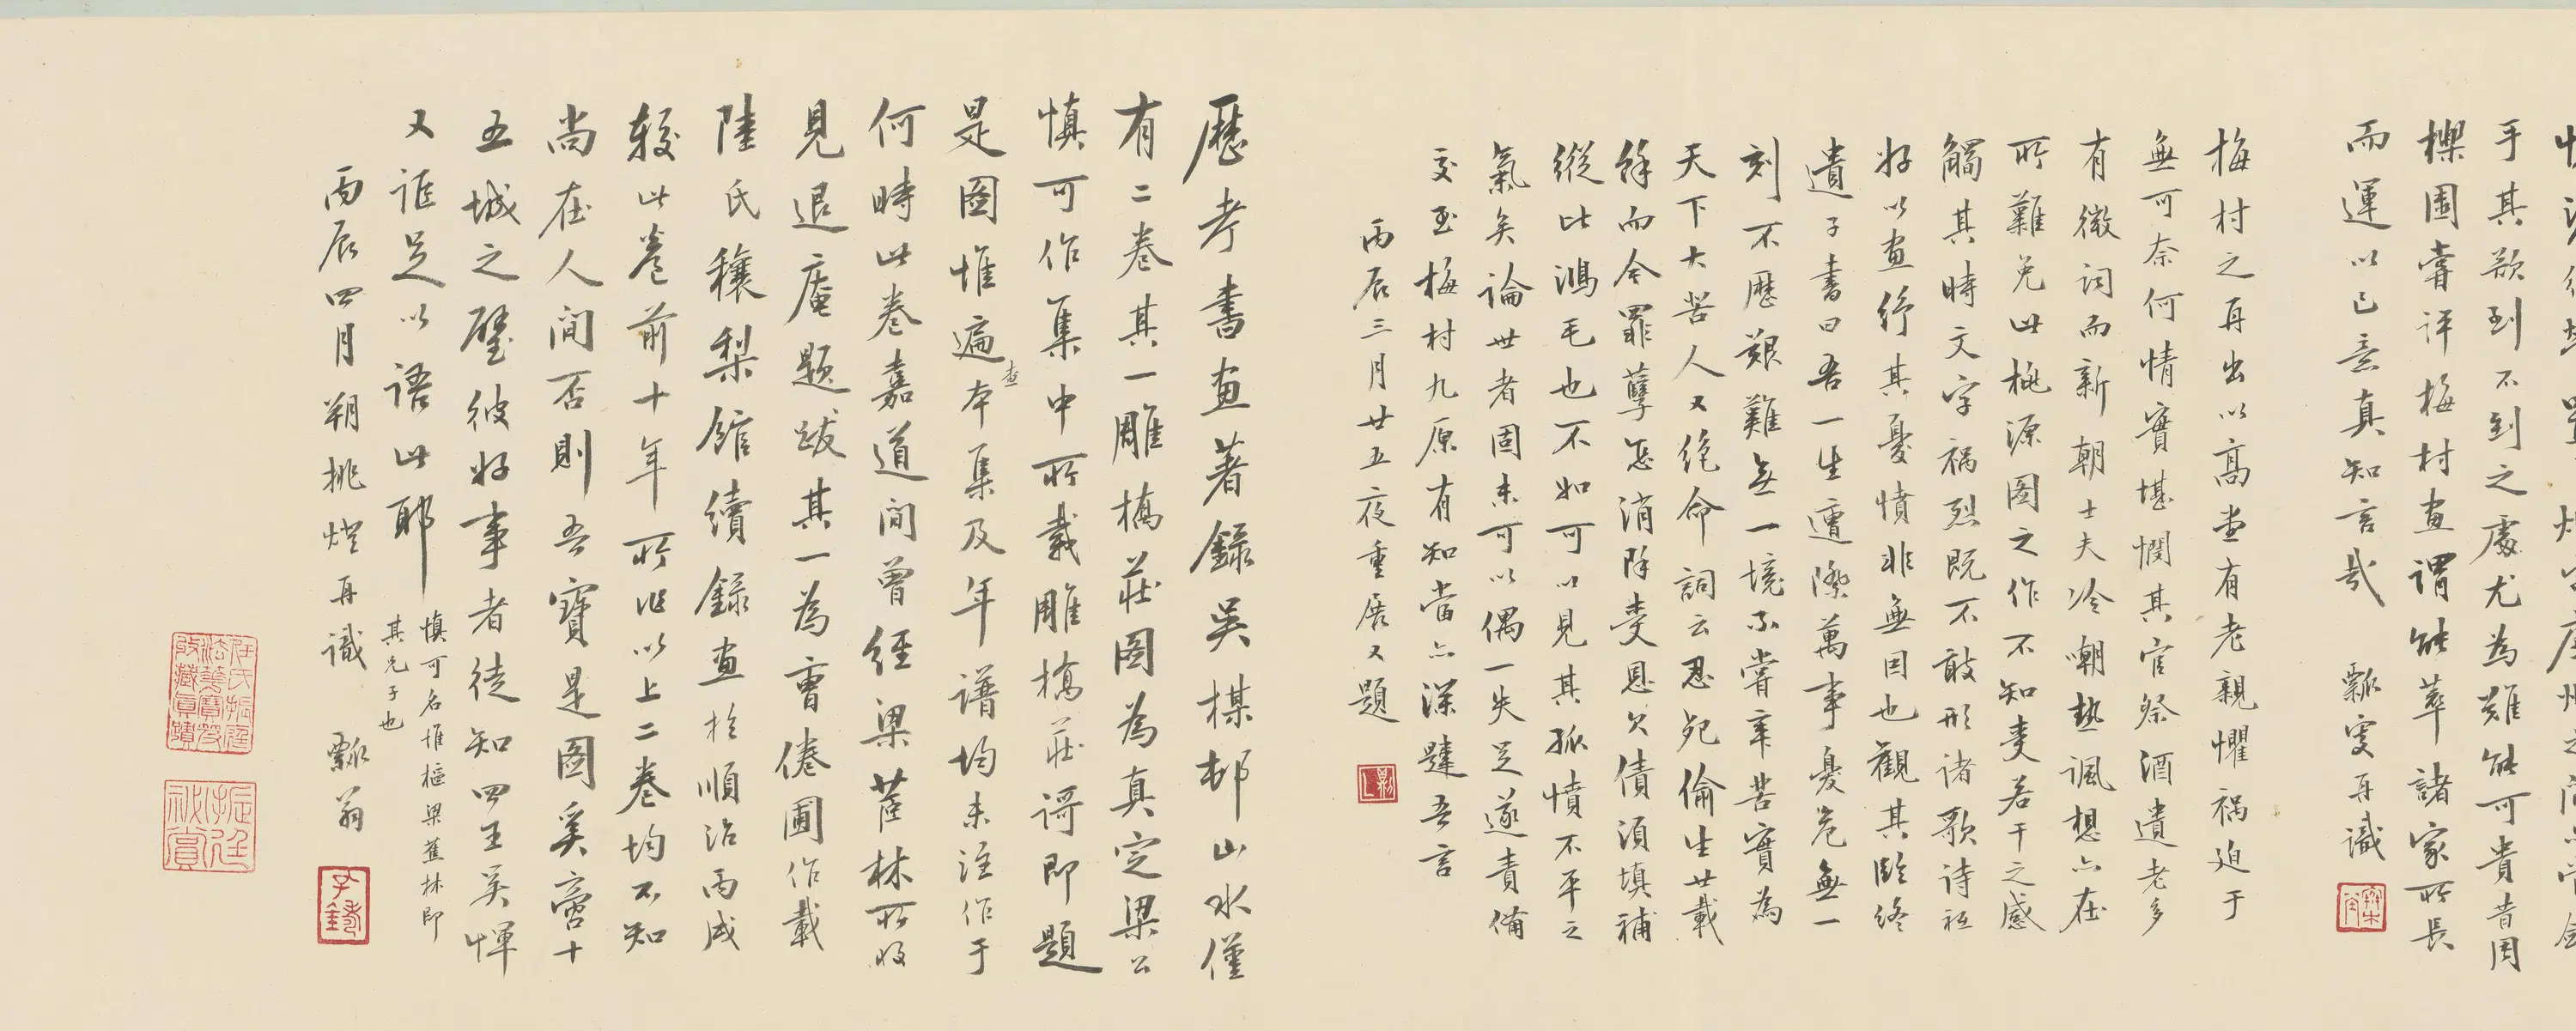 手其歘到不到之處尤為難能可貴昔周
櫟園嘗評梅村畫謂能萃諸家所長
而運以己意真知言哉
瓢叟再識
梅村之再出以高堂有老親懼禍迫于
無可奈何情實堪憫其官祭酒遺老多
有微詞而新朝士夫冷嘲熱諷想亦在
所難免此桃源圖之作不知費若干之感
觸其時文字禍烈既不敢形諸歌詩祗
好以畫紓其憂憤非無因也觀其臨終
遺子書曰吾一生遭際萬事憂危無一
刻不歷艱難無一境不嘗辛苦實為
天下大苦人又絕命詞云忍死偷生廿載
餘而今罪孽怎消除受恩欠債須填補
縱比鴻毛也不如可以見其孤憤不平之
氣矣論世者固未可以偶一失足遂責備
交至梅村九原有知當亦深韙吾言
丙辰三月廿五夜重展又題
歷考書畫著錄吳楳邨山水僅
有二卷其一雕橋莊圖為真定梁公
慎可作集中所載雕橋莊謌即題
是圖惟遍查本集及年譜均未注作于
何時此卷嘉道間曾經梁茝林所收
見退庵題跋其一為曹倦圃作載
陸氏穰梨館續錄畫於順治丙戌
較此卷前十年所作以上二卷均不知
尚在人間否則吾寶是圖奚啻十
五城之璧彼好事者徒知四王吳惲
又詎足以語此耶
慎可名維樞梁蕉林即
其兄子也
丙辰四月朔挑燈再識
瓢翁